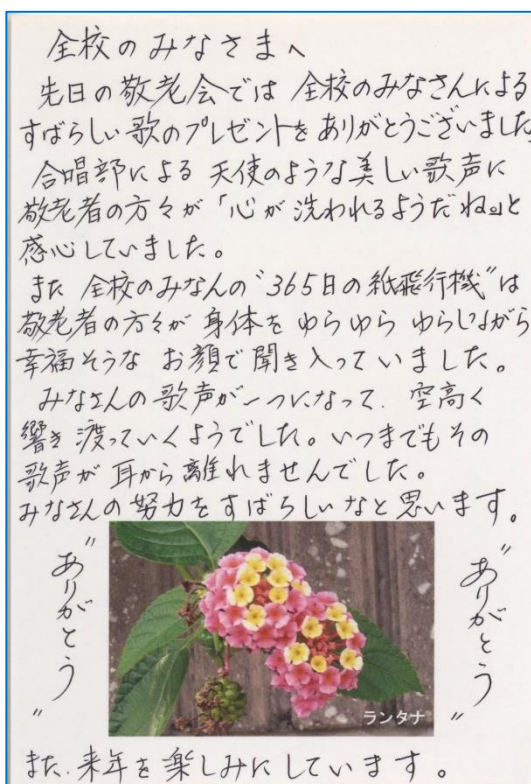 全校のみなさまへ
先日の敬老会では 全校のみなさんによる
すばらしい歌のプレゼントをありがとうございました
合唱部による 天使のような美しい歌声に
敬老者の方々が「心が洗われるようだね。」と
感心していました。
また 全校のみなんの“365日の紙飛行機”は
敬老者の方々が 身体を ゆらゆら ゆらしながら
幸福そうな お顔で聞き入っていました。
みなさんの歌声が一つになって、空高く
響き渡っていくようでした。いつまでもその
歌声が 耳から離れませんでした。
みなさんの努力をすばらしいなと思います。
“ありがとう”
“ありがとう”
ランタナ
また、来年を楽しみにしています。